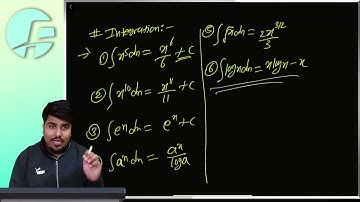 # Integration:-
→ ① ∫x⁵dx = x⁶/6 + c
② ∫x¹⁰dx = x¹¹/11 + c
③ ∫eˣdx = eˣ + c
∫aˣdx = aˣ/loga
⑤ ∫√x dx = 2x^3/2/3
⑥ ∫logxdx = xlogx - x